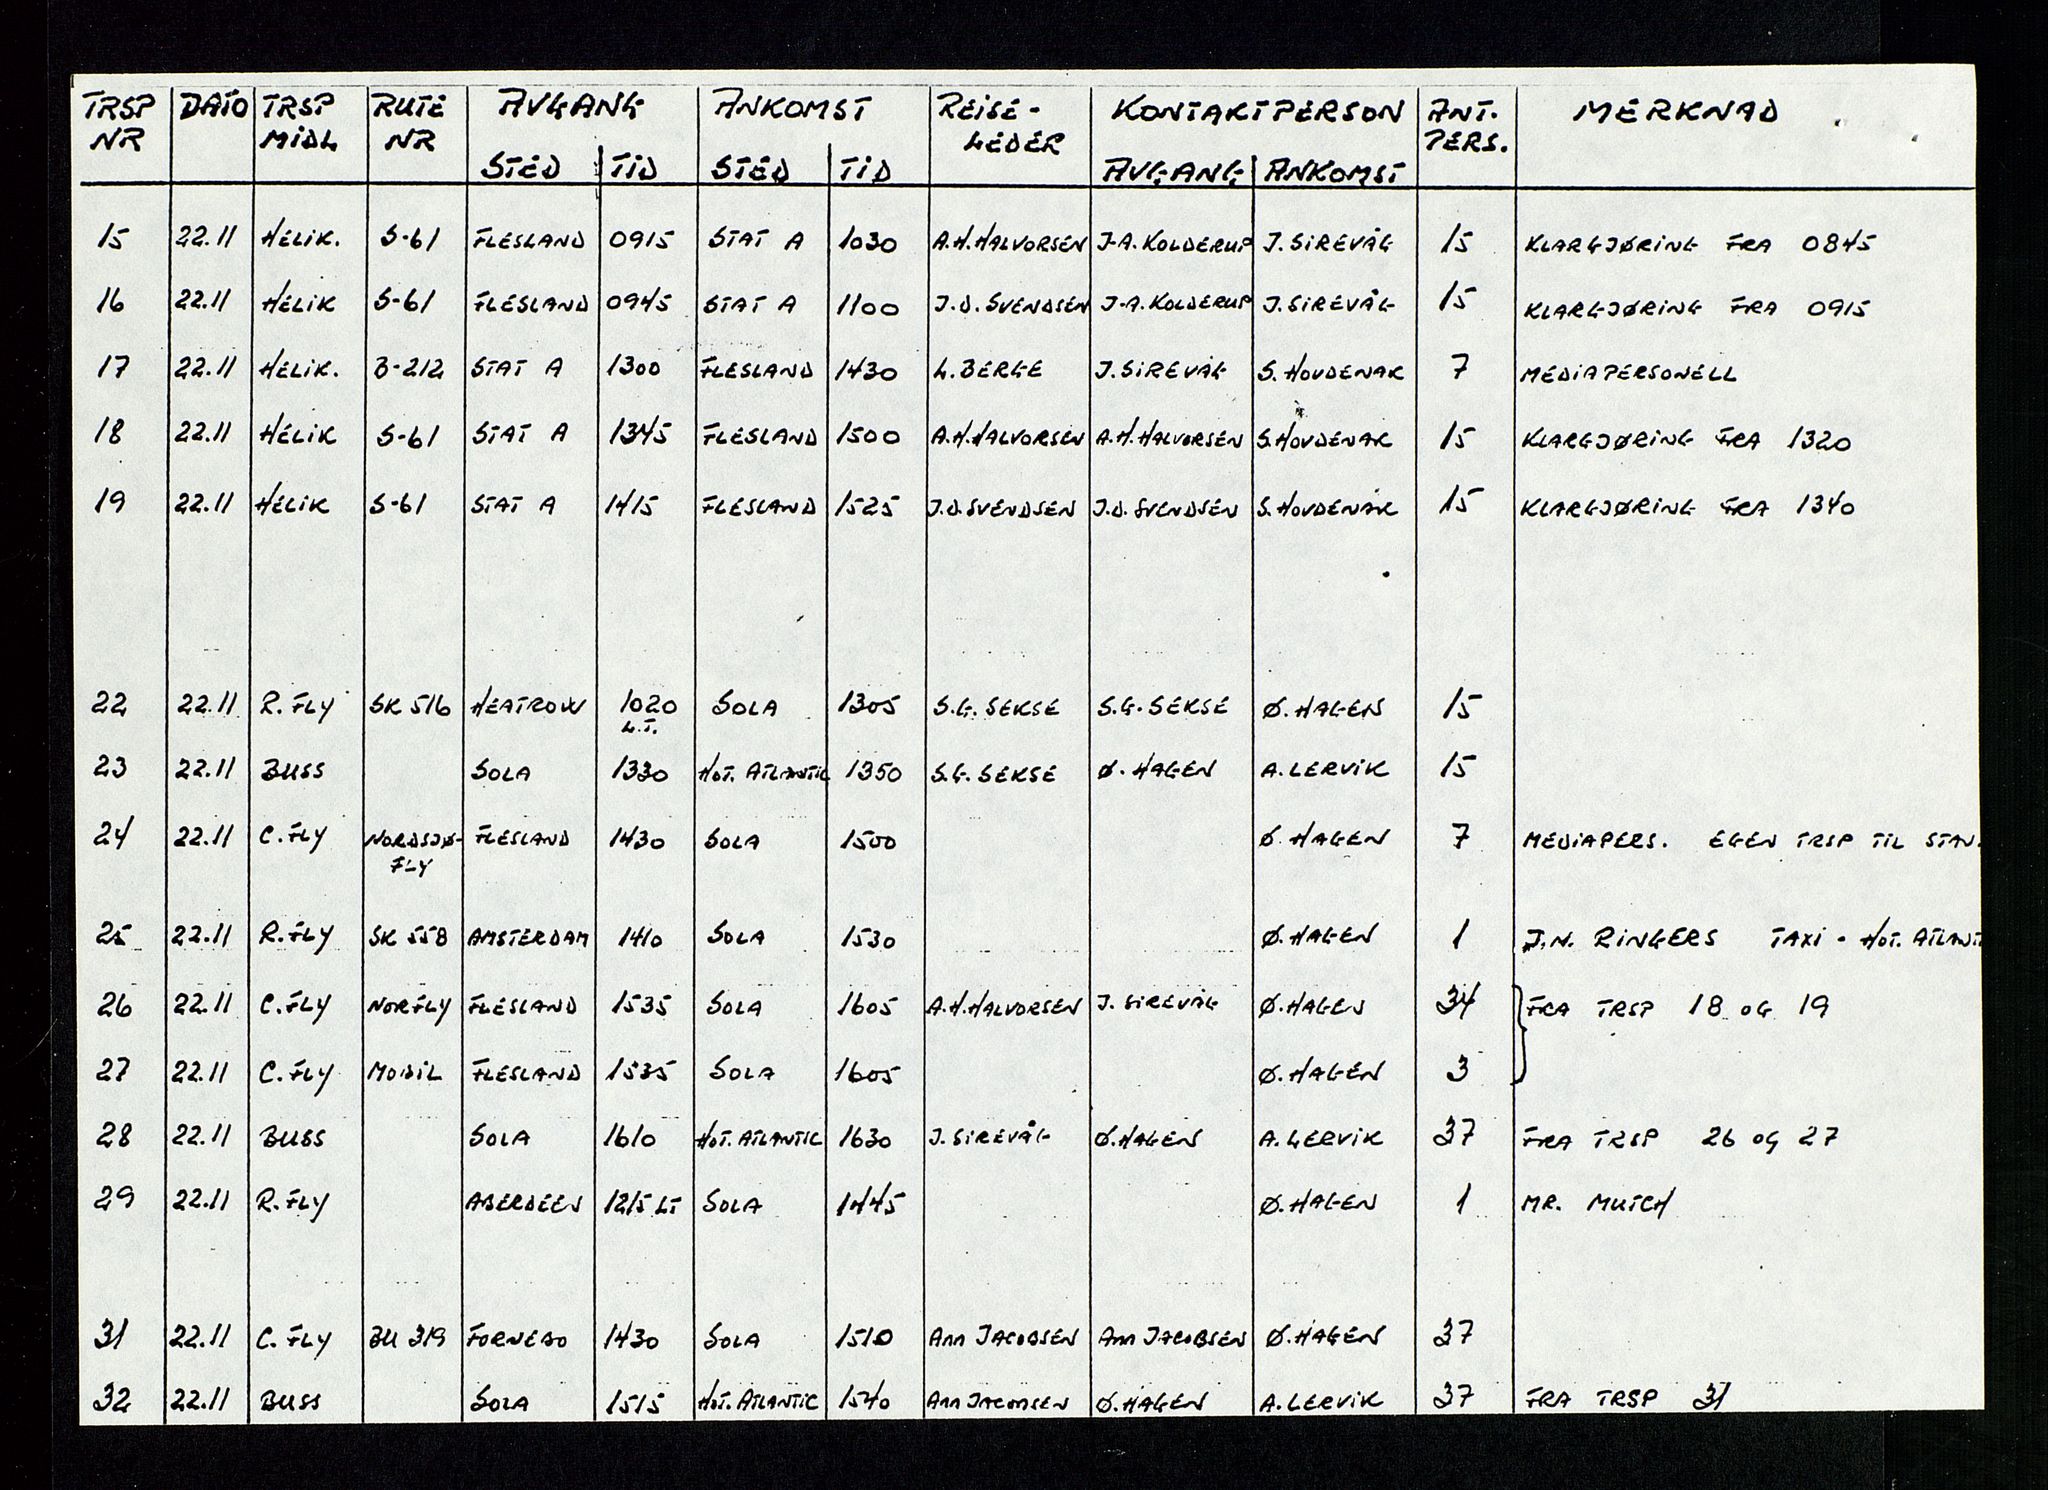 TRSP NR DATO TRSP MIDL RUTE NR AVGANG ANKOMST REISE-LEDER KONTAKTPERSON ANT. PERS. MERKNAD
STED TID STED TID AVGANG ANKOMST
15 22.11 HELIK. S-61 FLESLAND 0915 STAT A 1030 A.H.HALVORSEN J-A.KOLDERUP J.SIREVÅG 15 KLARGJØRING FRA 0845
16 22.11 HELIK S-61 FLESLAND 0945 STAT A 1100 J.O.SVENDSEN J-A.KOLDERUP J.SIREVÅG 15 KLARGJØRING FRA 0915
17 22.11 HELIK. B-212 STAT A 1300 FLESLAND 1430 L.BERGE J.SIREVÅG S.HOVDENAK 7 MEDIAPERSONELL
18 22.11 HELIK S-61 STAT A 1345 FLESLAND 1500 A.H.HALVORSEN A.H.HALVORSEN S.HOVDENAK 15 KLARGJØRING FRA 1320
19 22.11 HELIK S-61 STAT A 1415 FLESLAND 1525 J.O.SVENDSEN J.O.SVENDSEN S.HOVDENAK 15 KLARGJØRING FRA 1340
22 22.11 R.FLY SK 516 HEATROW 1020 L.T. SOLA 1305 S.G.SEKSE S.G.SEKSE Ø.HAGEN 15
23 22.11 BUSS SOLA 1330 HOT. ATLANTIC 1350 S.G.SEKSE Ø.HAGEN A.LERVIK 15
24 22.11 C.FLY NORDSJØ-FLY FLESLAND 1430 SOLA 1500 Ø.HAGEN 7 MEDIAPERS. EGEN TRSP TIL STAV.
25 22.11 R.FLY SK 558 AMSTERDAM 1410 SOLA 1530 Ø.HAGEN 1 J.N. RINGERS TAXI - HOT. ATLANTI
26 22.11 C.FLY NORFLY FLESLAND 1535 SOLA 1605 A.H.HALVORSEN J.SIREVÅG Ø.HAGEN 34 FRA TRSP 18 OG 19
27 22.11 C.FLY MOBIL FLESLAND 1535 SOLA 1605 Ø.HAGEN 3
28 22.11 BUSS SOLA 1610 HOT. ATLANTIC 1630 J.SIREVÅG Ø.HAGEN A.LERVIK 37 FRA TRSP 26 OG 27
29 22.11 R.FLY ABERDEEN 1215 LT SOLA 1445 Ø.HAGEN 1 MR. MUTCH
31 22.11 C.FLY BU 319 FORNEBO 1430 SOLA 1510 ANN JACOBSEN ANN JACOBSEN Ø.HAGEN 37
32 22.11 BUSS SOLA 1515 HOT. ATLANTIC 1540 ANN JACOBSEN Ø.HAGEN A.LERVIK 37 FRA TRSP 31